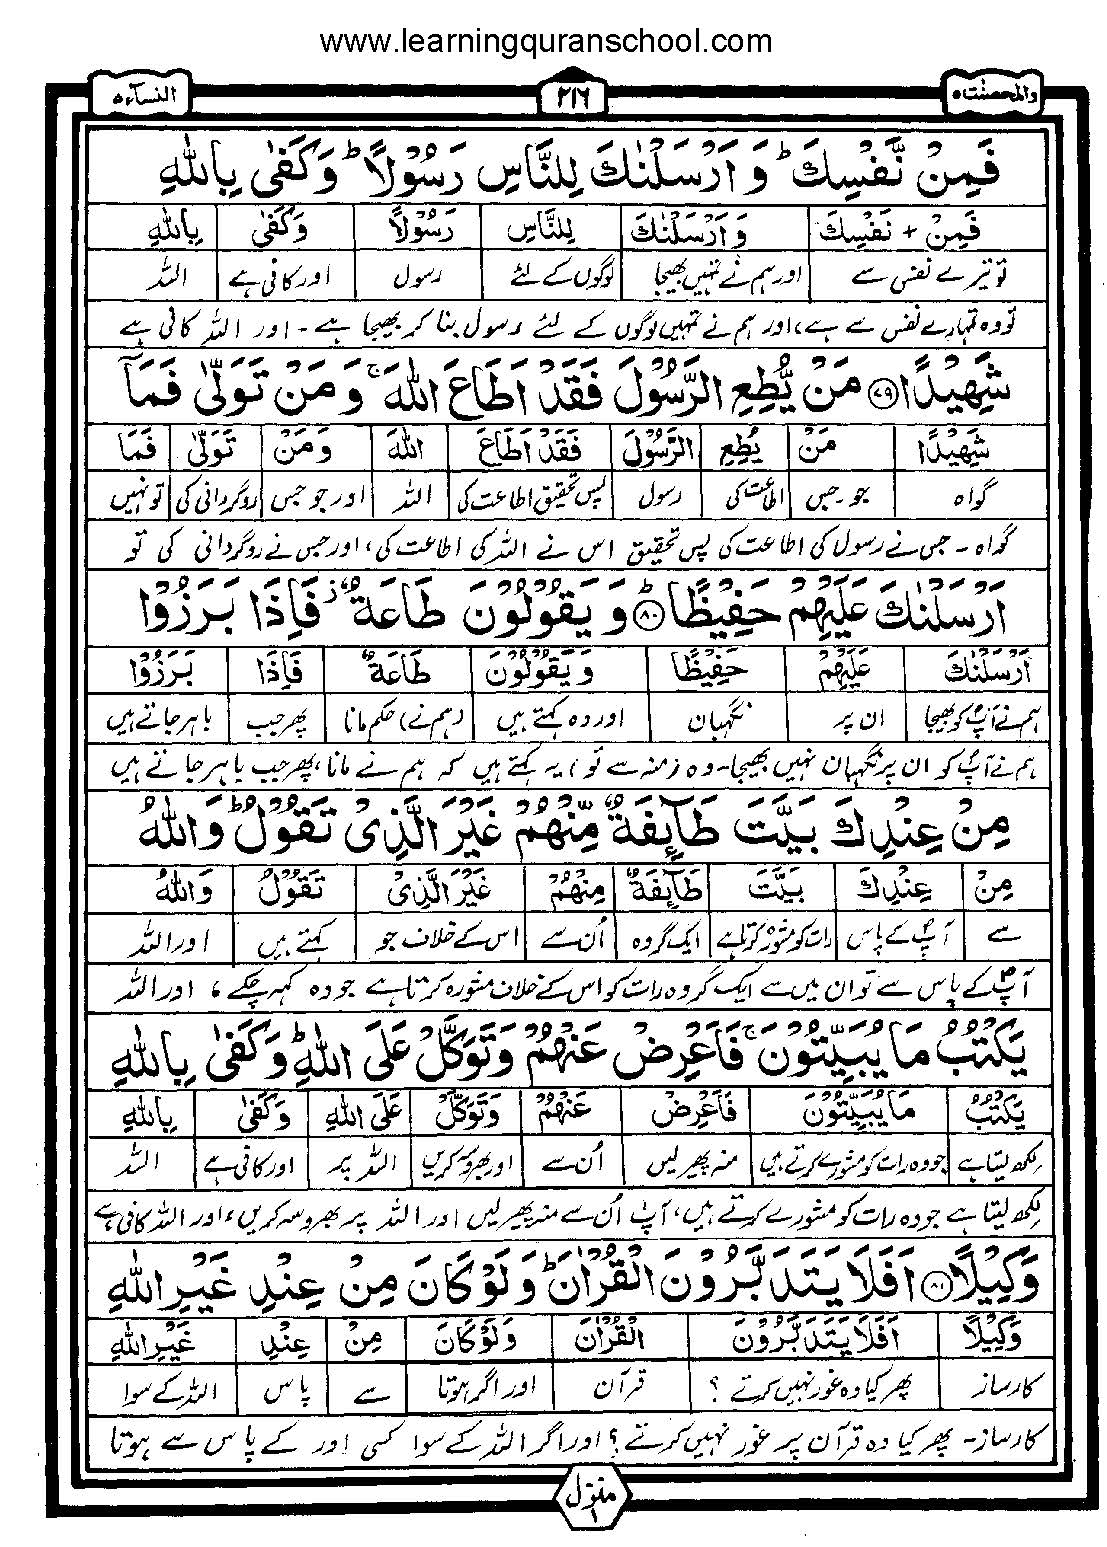 www.learningquranschool.com
والمحصنٰت ۵ ۲۱۶ النسآء ۵
فَمِنْ نَّفْسِكَ ؕ وَ اَرْسَلْنٰكَ لِلنَّاسِ رَسُوْلًا ؕ وَ كَفٰى بِاللّٰهِ
فَمِنْ + نَفْسِكَ وَ اَرْسَلْنٰكَ لِلنَّاسِ رَسُوْلًا وَكَفٰى بِاللّٰهِ
تو تیرے نفس سے اور ہم نے تمہیں بھیجا لوگوں کے لئے رسول اور کافی ہے اللہ
تو وہ تمہارے نفس سے ہے، اور ہم نے تمہیں لوگوں کے لئے رسول بنا کر بھیجا ہے - اور اللہ کافی ہے
شَهِيْدًا ۷۹ مَنْ يُّطِعِ الرَّسُوْلَ فَقَدْ اَطَاعَ اللّٰهَ ۚ وَ مَنْ تَوَلّٰى فَمَاۤ
شَهِيْدًا مَنْ يُطِعِ الرَّسُوْلَ فَقَدْ اَطَاعَ اللّٰهَ وَمَنْ تَوَلّٰى فَمَا
گواہ جو ۔ جس اطاعت کی رسول پس تحقیق اطاعت کی اللہ اور جو جس روگردانی کی تو نہیں
گواہ - جس نے رسول کی اطاعت کی پس تحقیق اس نے اللہ کی اطاعت کی، اور جس نے روگردانی کی تو
اَرْسَلْنٰكَ عَلَيْهِمْ حَفِيْظًا ۸۰ؕ وَ يَقُوْلُوْنَ طَاعَةٌ ؗ فَاِذَا بَرَزُوْا
اَرْسَلْنٰكَ عَلَيْهِمْ حَفِيْظًا وَ يَقُوْلُوْنَ طَاعَةٌ فَاِذَا بَرَزُوْا
ہم نے آپؐ کو بھیجا ان پر نگہبان اور وہ کہتے ہیں (ہم نے) حکم مانا پھر جب باہر جاتے ہیں
ہم نے آپؐ کو ان پر نگہبان نہیں بھیجا - وہ (منہ سے تو) یہ کہتے ہیں کہ ہم نے مانا، پھر جب باہر جاتے ہیں
مِنْ عِنْدِكَ بَيَّتَ طَآىِٕفَةٌ مِّنْهُمْ غَيْرَ الَّذِيْ تَقُوْلُ ؕ وَاللّٰهُ
مِنْ عِنْدِكَ بَيَّتَ طَآىِٕفَةٌ مِنْهُمْ غَيْرَ الَّذِيْ تَقُوْلُ وَاللّٰهُ
سے آپؐ کے پاس رات کو مشورہ کرتا ہے ایک گروہ اُن سے اس کے خلاف جو کہتے ہیں اور اللہ
آپؐ کے پاس سے تو ان میں سے ایک گروہ رات کو اس کے خلاف مشورہ کرتا ہے جو وہ کہہ چکے، اور اللہ
يَكْتُبُ مَا يُبَيِّتُوْنَ ۚ فَاَعْرِضْ عَنْهُمْ وَتَوَكَّلْ عَلَى اللّٰهِ ؕ وَكَفٰى بِاللّٰهِ
يَكْتُبُ مَا يُبَيِّتُوْنَ فَاَعْرِضْ عَنْهُمْ وَتَوَكَّلْ عَلَى اللّٰهِ وَكَفٰى بِاللّٰهِ
لکھ لیتا ہے جو وہ رات کو مشورے کرتے ہیں منہ پھیر لیں اُن سے اور بھروسہ کریں اللہ پر اور کافی ہے اللہ
لکھ لیتا ہے جو وہ رات کو مشورے کرتے ہیں، آپؐ اُن سے منہ پھیر لیں اور اللہ پر بھروسہ کریں، اور اللہ کافی ہے
وَكِيْلًا ۸۱ اَفَلَا يَتَدَبَّرُوْنَ الْقُرْاٰنَ ؕ وَلَوْ كَانَ مِنْ عِنْدِ غَيْرِ اللّٰهِ
وَكِيْلًا اَفَلَا يَتَدَبَّرُوْنَ الْقُرْاٰنَ وَلَوْ كَانَ مِنْ عِنْدِ غَيْرِ اللّٰهِ
کارساز پھر کیا وہ غور نہیں کرتے ؟ قرآن اور اگر ہوتا سے پاس اللہ کے سوا
کارساز - پھر کیا وہ قرآن پر غور نہیں کرتے ؟ اور اگر اللہ کے سوا کسی اور کے پاس سے ہوتا
منزل ۱